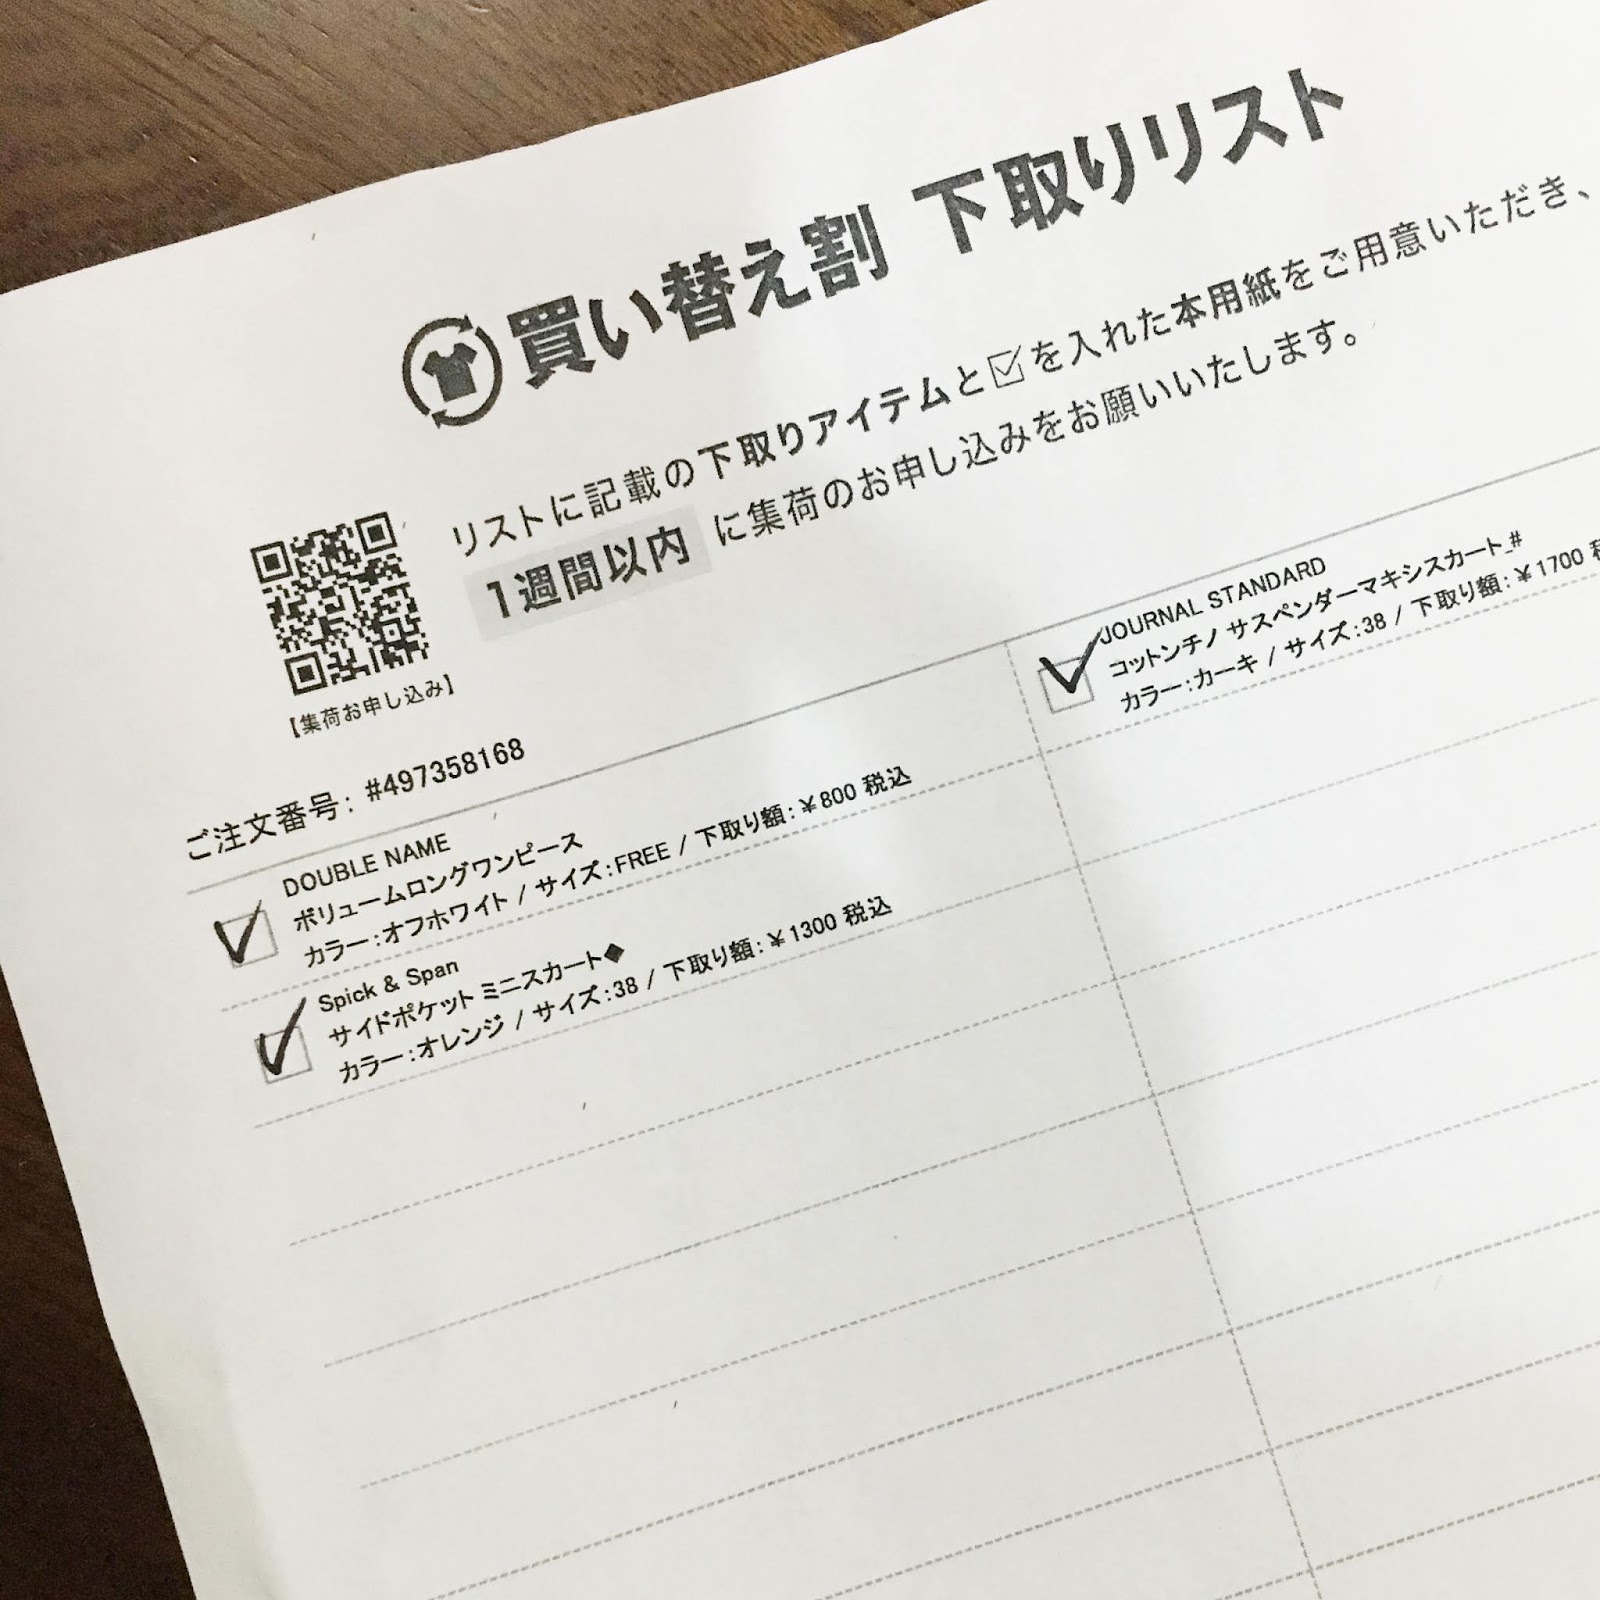 買い替え割 下取りリスト
リストに記載の下取りアイテムと☑を入れた本用紙をご用意いただき、
1週間以内 に集荷のお申し込みをお願いいたします。
【集荷お申し込み】
ご注文番号: #497358168
DOUBLE NAME
ボリュームロングワンピース
カラー:オフホワイト / サイズ:FREE / 下取り額:¥800 税込
Spick & Span
サイドポケット ミニスカート◆
カラー:オレンジ / サイズ:38 / 下取り額:¥1300 税込
JOURNAL STANDARD
コットンチノ サスペンダーマキシスカート_#
カラー:カーキ / サイズ:38 / 下取り額:¥1700 税